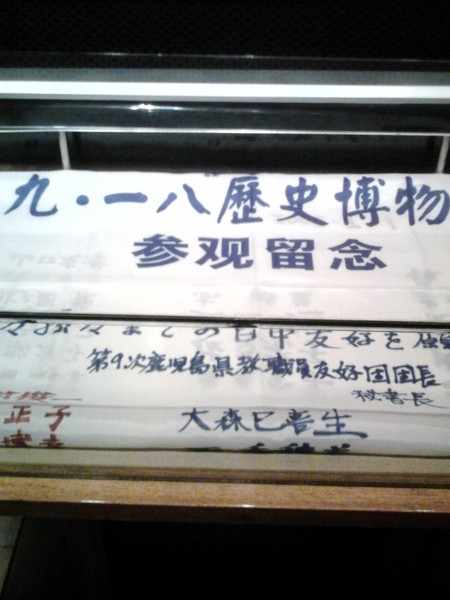 九·一八歷史博物
参观留念
々まての日中友好を
第9次鹿児島県教職員友好团团長
秘書長
正子
大森巳喜生